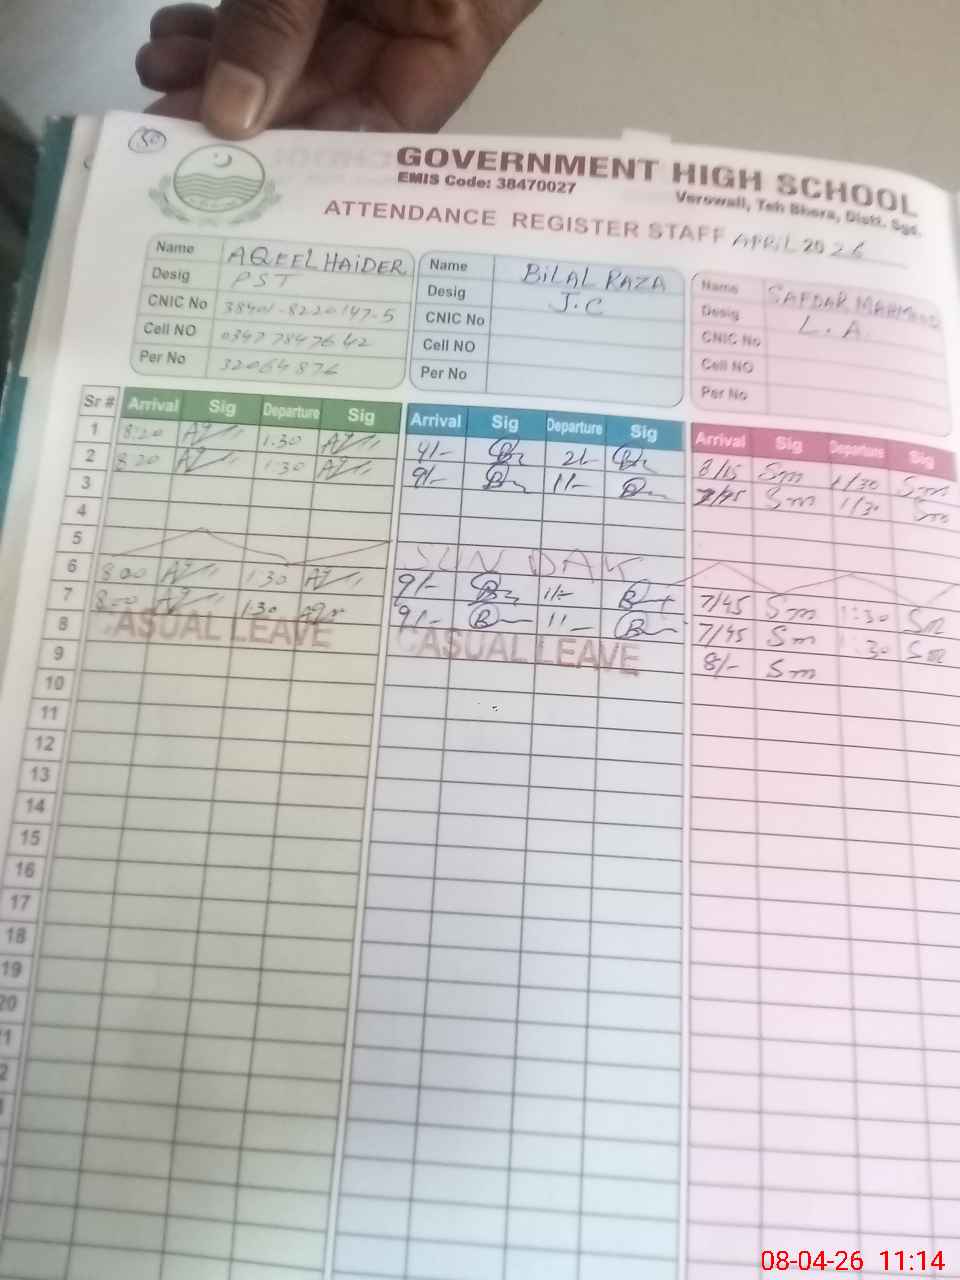 30
GOVERNMENT HIGH SCHOOL
EMIS Code: 38470027 Verowall, Teh Bhera, Distt. Sgd.
ATTENDANCE REGISTER STAFF APRIL 2026
Name AQEEL HAIDER Name BILAL RAZA Name SAFDAR MAHMOOD
Desig PST Desig J.C Desig L.A.
CNIC No 38401-8220147-5 CNIC No CNIC No
Cell NO 03477847642 Cell NO Cell NO
Per No 32064876 Per No Per No
Sr # Arrival Sig Departure Sig Arrival Sig Departure Sig Arrival Sig Departure Sig
1 8:20 1.30 2/- 8/15 Sm 1/30 Sm
2 8 20 1:30 9/- 11/- Sm 1/30 Sm
3
4
5 SUNDAY
6 8 00 1:30 9/- 11/- 7/45 Sm 1:30 Sm
7 8:00 1:30 9/- 11/- 7/45 Sm 1:30 Sm
8 CASUAL LEAVE CASUAL LEAVE 8/- Sm
9
10
11
12
13
14
15
16
17
18
19
20
08-04-26 11:14